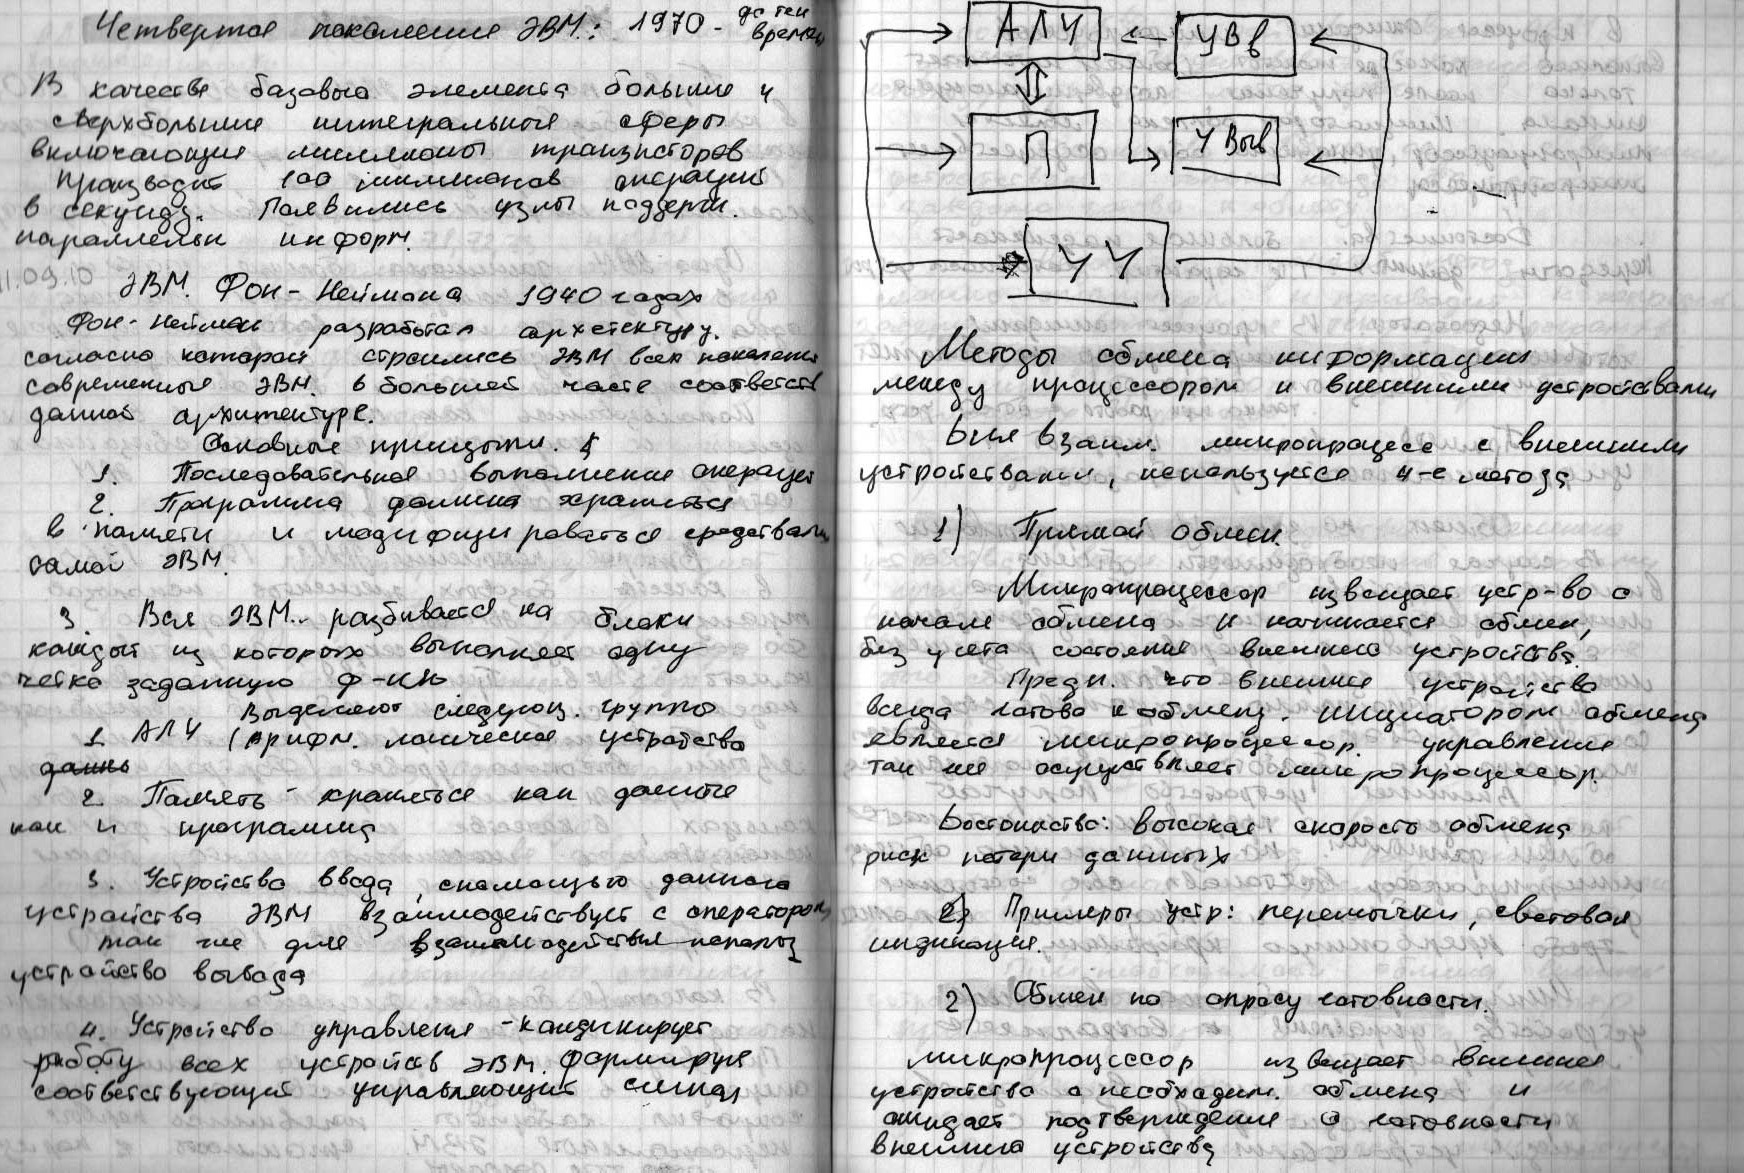 Четвертое поколение ЭВМ.: 1970 - до тек времен
В качестве базового элемента большие и
сверхбольшие интегральные сферы
включающие миллионы транзисторов
Производит 100 миллионов операций
в секунду. Появились узлы поддерж.
параллельн информ.
11.09.10
ЭВМ. Фон-Неймана 1940 годах
Фон-Нейман разработал архетектуру.
согласно которой строились ЭВМ всех поколен
современные ЭВМ. в большей часте соответств
данной архитектуре.
Основные принципы.
1. Последовательное выполнение операций
2. Программа должна храниться
в памяти и модифицироваться средствами
самой ЭВМ.
3. Вся ЭВМ.. разбивается на блоки
каждый из которых выполняет одну
четко заданную ф-кю
Выделяют следующ. группы
1. АЛУ (арифм. логическое устройство
2. Память - храняться как данные
как и программа
3. Устройства ввода, спомощью данного
устройства ЭВМ взаимодействует с оператором,
так же для взаимодействия использ
устройство вывода
4. Устройство управления -кандинирует
работу всех устройств ЭВМ. формируя
соответствующий управляющий сигнал
АЛУ
УВв
П
УВыв
УУ
Методы обмена информации
между процессором и внешними устройствами
Для взаим. микропроцесс с внешними
устройствами, используется 4-е метода
1) Прямой обмен.
Микропроцессор извещает устр-во о
начале обмена и начинается обмен,
без учета состояния внешнего устройства.
Предп. что внешнее устройство
всегда готово к обмену. инициатором обмена
является микропроцессор. управление
так же осуществляет микропроцессор.
Достоинства: высокая скорость обмена
риск потери данных
2) Примеры устр: перемычки, световая
индикация.
2) Обмен по опросу готовности.
микропроцессор извещает внешнее
устройство о необходим. обмена и
ожидает подтверждение о готовности
внешнего устройства